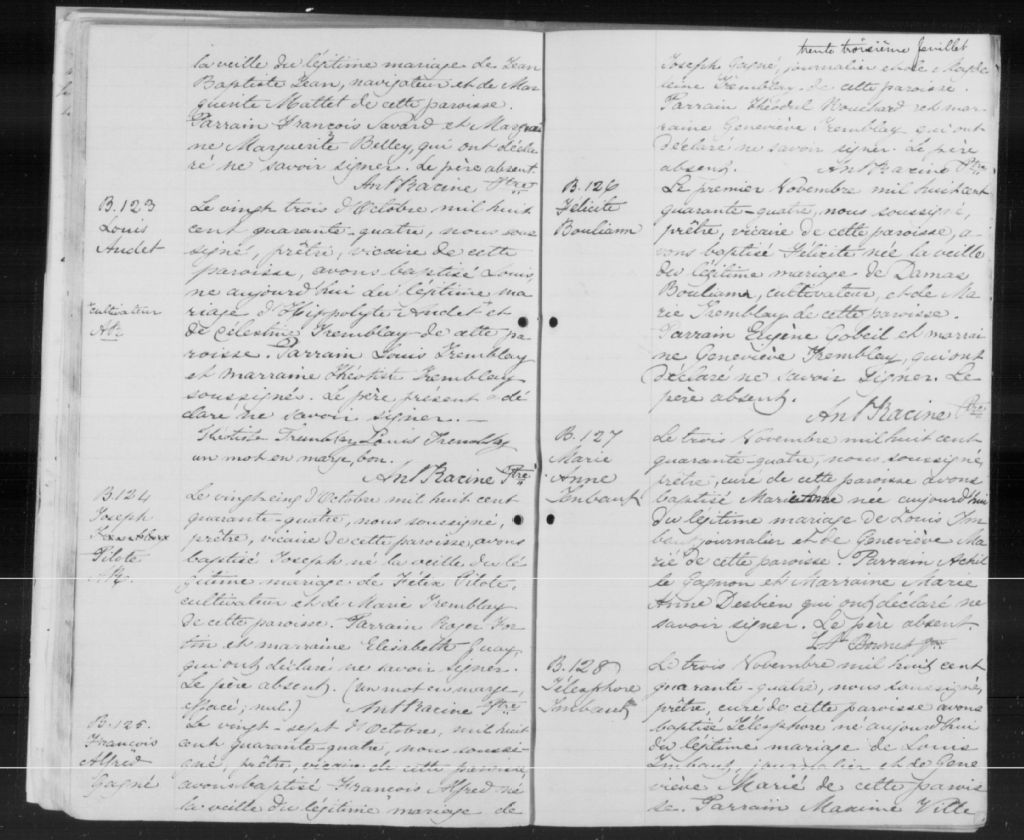 la veille du légitime mariage de Jean
Baptiste Jean, navigateur et de Mar
guerite Mattet de cette paroisse.
Parrain François Savard et Marrai
ne Marguerite Belley, qui ont décla
ré ne savoir signer. Le père absent.
Ant Racine Ptre
B. 123
Louis
Audet
Cultivateur
Le vingt trois d'Octobre mil huit
cent quarante-quatre, nous sous
signé, prêtre, vicaire de cette
paroisse, avons baptisé Louis,
né aujourd'hui du légitime ma
riage d'Hippolyte Audet et
de Célestine Tremblay de cette pa
roisse. Parrain Louis Tremblay
et marraine Théotiste Tremblay
soussignés. Le père présent a dé
claré ne savoir signer. —
Théotiste Tremblay Louis Tremblay
un mot en marge, bon.
Ant Racine Ptre
B. 124
Joseph
Pilote
Le vingt cinq d'Octobre mil huit cent
quarante-quatre, nous soussigné,
prêtre, vicaire de cette paroisse, avons
baptisé Joseph né la veille du lé
gitime mariage de Félix Pilote,
cultivateur et de Marie Tremblay
de cette paroisse. Parrain Roger For
tin et marraine Elisabeth Guay,
qui ont déclaré ne savoir signer.
Le père absent. (un mot en marge,
effacé; nul.) Ant Racine Ptre
B. 125.
François
Alfred
Gagné
Le vingt-sept d'Octobre, mil huit
cent quarante-quatre, nous soussi
gné, prêtre, vicaire de cette paroisse,
avons baptisé François Alfred né
la veille du légitime mariage de
trente troisième feuillet
Joseph Gagné, journalier et de Magde
leine Tremblay de cette paroisse.
Parrain Théodul Bouchard et mar
raine Geneviève Tremblay qui ont
déclaré ne savoir signer. Le père
absent. Ant Racine Ptre
B. 126
Félicité
Bouliann
Le premier Novembre mil huit cent
quarante-quatre, nous soussigné,
prêtre, vicaire de cette paroisse, a-
vons baptisé Félicité née la veille
du légitime mariage de Damas
Bouliann, cultivateur, et de Ma
rie Tremblay de cette paroisse.
Parrain Eugène Gobeil et marrai
ne Geneviève Tremblay, qui ont
déclaré ne savoir signer. Le
père absent.
Ant Racine Ptre
B. 127
Marie
Anne
Imbault
Le trois Novembre mil huit cent
quarante-quatre, nous soussigné,
prêtre, curé de cette paroisse avons
baptisé Marie Anne née aujourd'hui
du légitime mariage de Louis Im
baut journalier et de Geneviève Ma
rié de cette paroisse. Parrain Achil
le Gagnon et Marraine Marie
Anne Desbien qui ont déclaré ne
savoir signer. Le père absent.
B. 128
Télesphore
Imbault
Le trois Novembre mil huit cent
quarante-quatre, nous soussigné,
prêtre, curé de cette paroisse avons
baptisé Télesphore né aujourd'hui
du légitime mariage de Louis
Imbaut, journalier et de Gene
viève Marié de cette parois
se. Parrain Maxime Ville